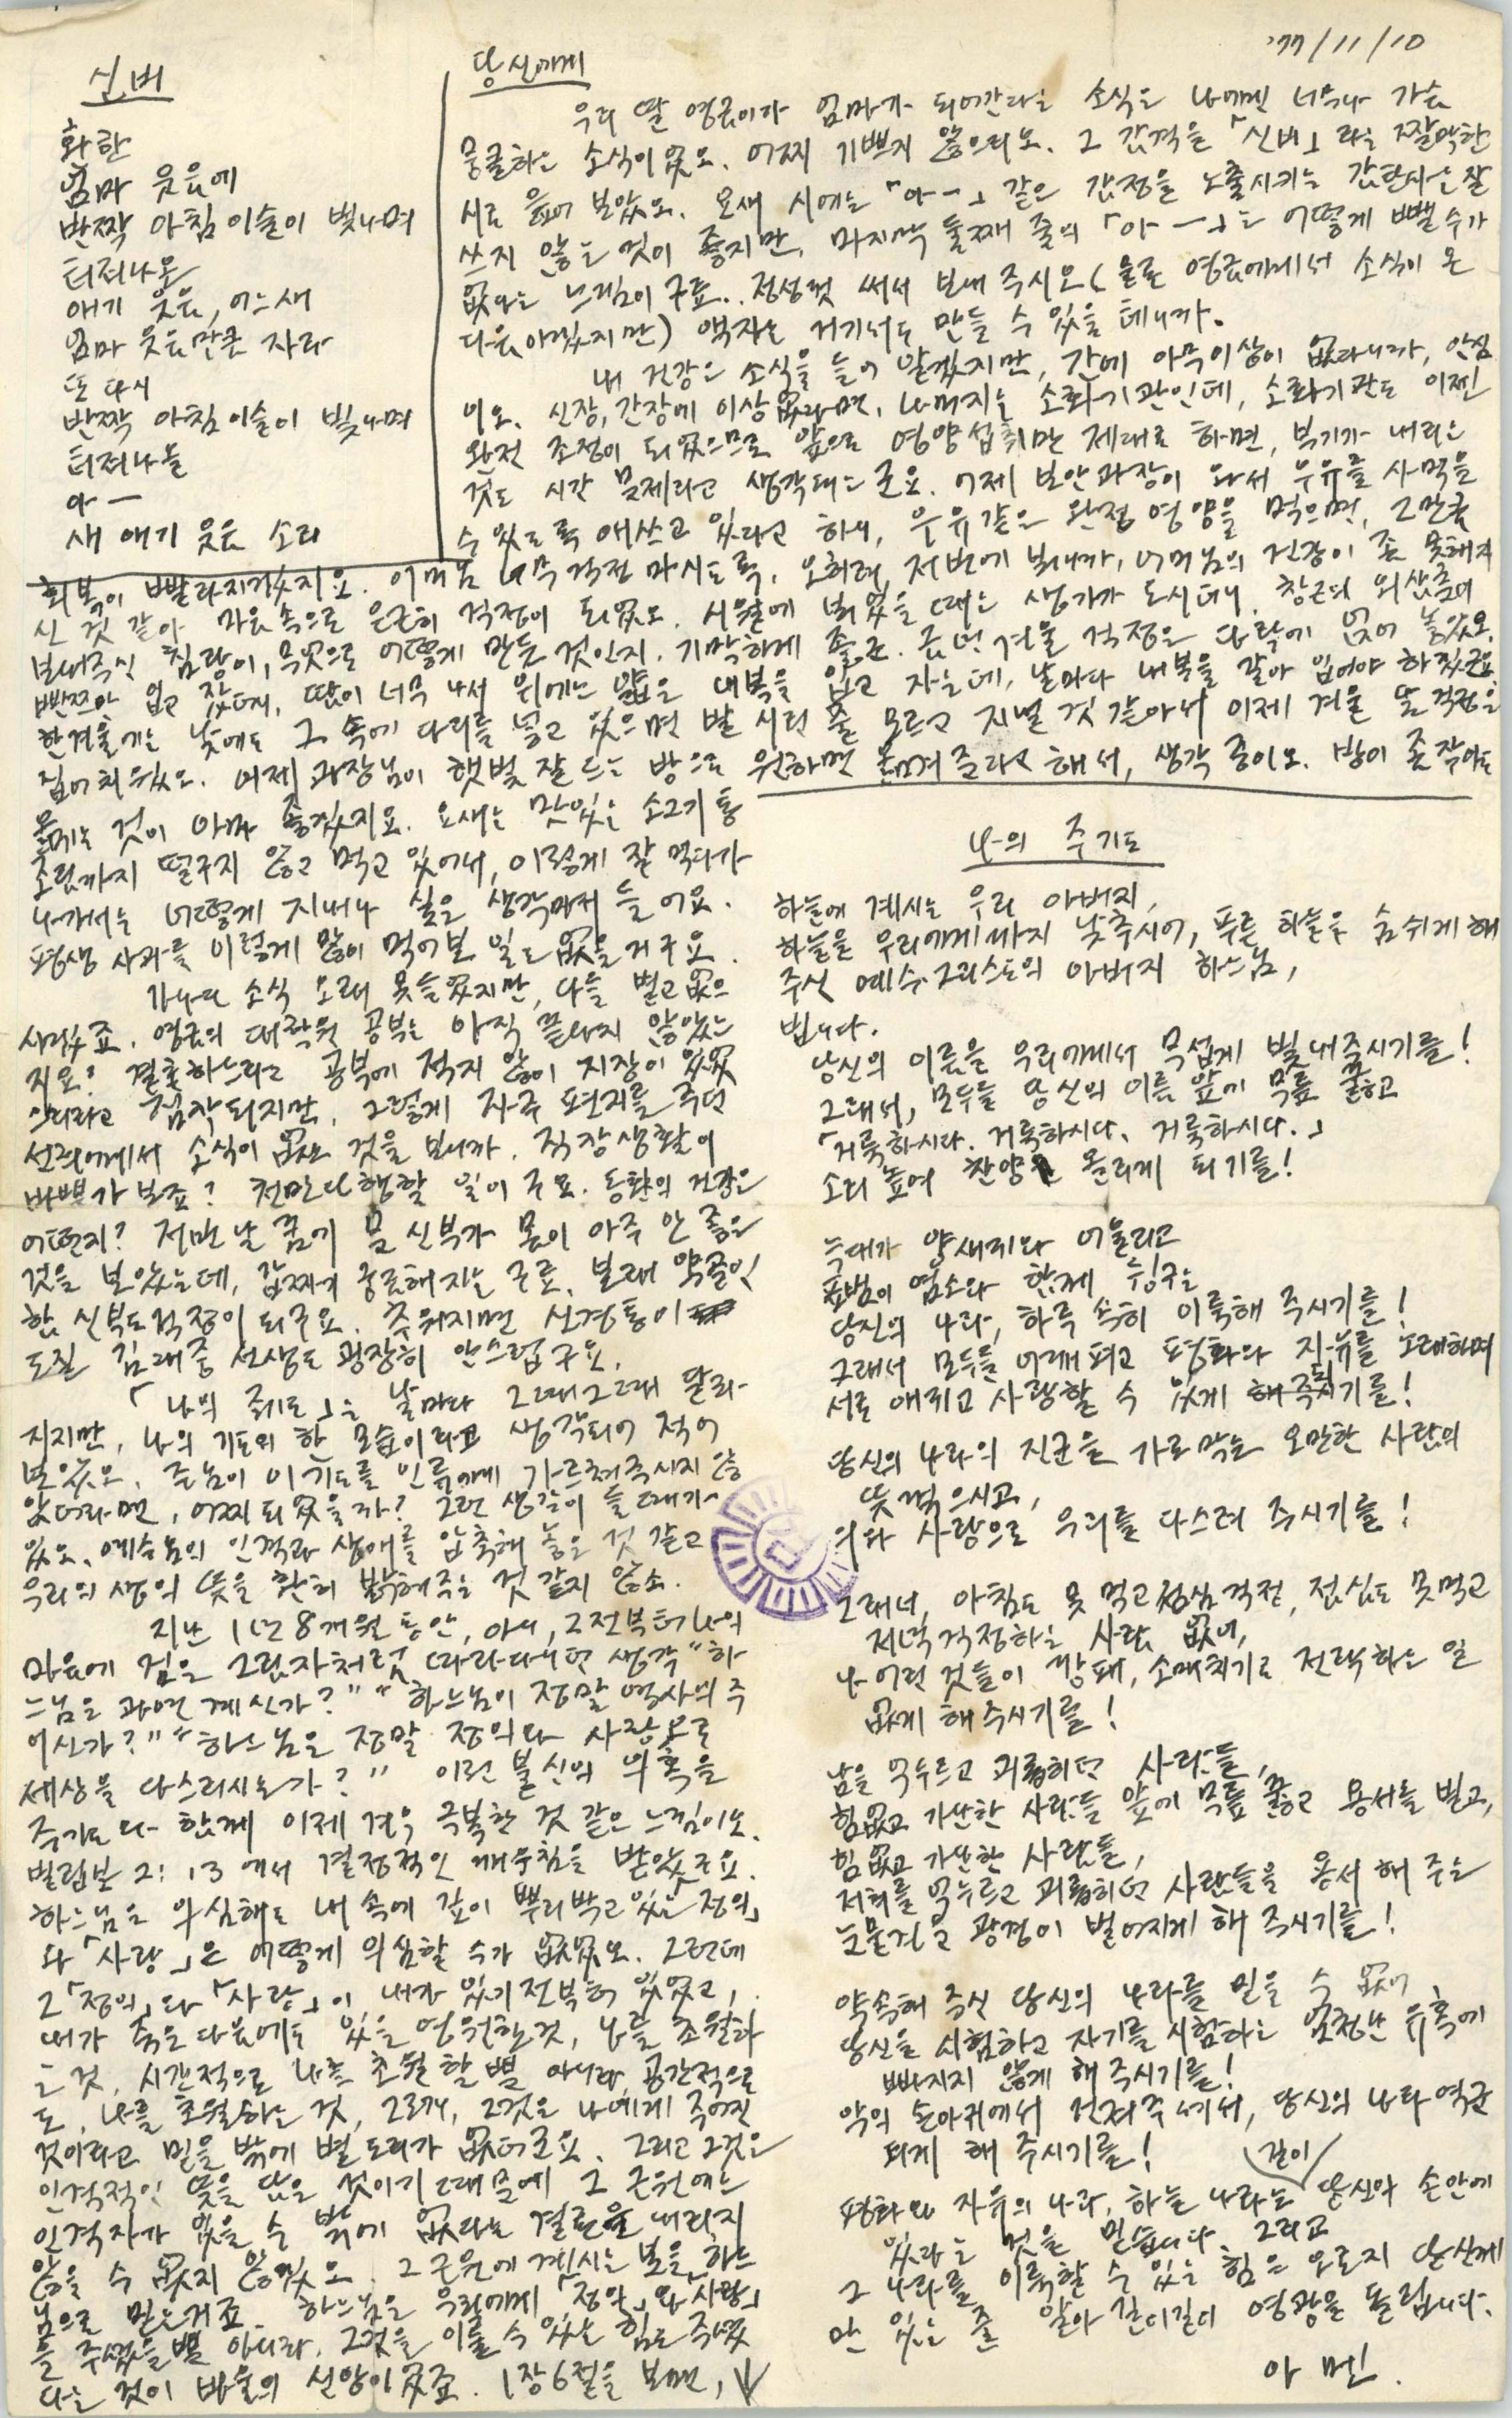 '77/11/10
신비
화한
엄마 웃음에
반짝 아침 이슬이 빛나며
터져나온
애기 웃음, 어느새
엄마 웃음만큼 자라
또 다시
반짝 아침 이슬이 빛나며
터져나올
아ㅡ
새 애기 웃음 소리
당신에게
우리 딸 영금이가 엄마가 되어간다는 소식은 나에겐 너무나 가슴
뭉클하는 소식이었오. 어찌 기쁘지 않으리오. 그 감격을 「신비」라는 짤막한
시로 읊어 보았오. 요새 시에는 「아ㅡ」 같은 감정을 노출시키는 감탄사는 잘
쓰지 않는 것이 좋지만, 마지막 둘째 줄의 「아ㅡ」는 어떻게 뺄 수가
없다는 느낌이구료. 정성껏 써서 보내 주시오 (물론 영금에게서 소식이 온
다음이겠지만) 액자는 거기서도 만들 수 있을 테니까.
내 건강은 소식을 들어 알겠지만, 간에 아무 이상이 없다니까, 안심
이오. 신장, 간장에 이상 없다면, 나머지는 소화기관인데, 소화기관도 이젠
완전 조정이 되었으므로 앞으로 영양섭취만 제대로 하면, 붓기가 내리는
것도 시간 문제라고 생각되는군요. 어제 보안과장이 와서 우유를 사먹을
수 있도록 애쓰고 있다고 하니, 우유같은 완전 영양을 먹으면, 그만큼
회복이 빨라지겠지요. 어머님 너무 걱정 마시도록. 오히려, 저번에 보니까, 어머님의 건강이 좀 못해지
신 것 같아 마음 속으로 은근히 걱정이 되었오. 시월에 뵈었을 때는 생기가 도시더니. 창근의 외삼촌이
보내주신 침랑이, 무엇으로 어떻게 만든 것인지. 기막히게 좋군. 겨울 걱정은 다락에 얹어 놓았오.
빤쯔만 입고 잤더니, 땀이 너무 나서 위에는 얇은 내복을 입고 자는데, 날마다 내복을 갈아 입어야 하겠군요.
한겨울에는 낮에도 그 속에 다리를 넣고 있으면 발 시린 줄 모르고 지낼 것 같아서 이제 겨울 날 걱정은
집어치웠오. 어제 과장님이 햇빛 잘 드는 방으로 원하면 옮겨 준다고 해서, 생각 중이오. 방이 좀 작아도
옮기는 것이 아마 좋겠지요. 요새는 맛있는 소고기 통
조림까지 떨구지 않고 먹고 있어서, 이렇게 잘 먹다가
나가서는 어떻게 지내나 싶은 생각마저 들어요.
평생 사과를 이렇게 많이 먹어본 일도 없을 거구요.
가나다 소식 오래 못 들었지만, 다들 별고 없으
시겠죠. 영금의 대학원 공부는 아직 끝나지 않았는
지요? 결혼하느라고 공부에 적지 않이 지장이 있었
으리라고 짐작되지만. 그렇게 자주 편지를 주던
선희에게서 소식이 없는 것을 보니까. 직장생활이
바쁜가 보죠? 천만다행할 일이구요. 동환의 건강은
어떤지? 저번날 꿈에 문 신부가 몸이 아주 안 좋은
것을 보았는데, 갑짜기 궁금해지는구료. 본래 약골인
함 신부도 걱정이 되구요. 추워지면 신경통이
도질 김대중 선생도 굉장히 안스럽구요.
「나의 주기도」는 날마다 그때그때 달라
지지만, 나의 기도의 한 모습이라고 생각되어 적어
보았오. 주님이 이 기도를 인류에게 가르쳐 주시지 않
았더라면, 어찌 되었을까? 그런 생각이 들 때가
있오. 예수님의 인격과 생애를 압축해 놓은 것 같고
우리의 생의 뜻을 환히 밝혀주는 것 같지 않소.
지난 1년 8개월 동안, 아니, 그전부터 나의
마음에 검은 그림자처럼 따라다니던 생각 "하
느님은 과연 계신가?" "하느님이 정말 역사의 주
이신가?" "하느님은 정말 정의와 사랑으로
세상을 다스리시는가?" 이런 불신의 의혹을
주기도와 함께 이제 겨우 극복한 것 같은 느낌이오.
빌립보 2:13에서 결정적인 깨우침을 받았군요.
하느님은 의심해도 내 속에 깊이 뿌리박고 있는 「정의」
와 「사랑」은 어떻게 의심할 수가 없었오. 그런데
그 「정의」와 「사랑」이 내가 있기 전부터 있었고,
내가 죽은 다음에도 있을 영원한 것, 나를 초월하
는 것, 시간적으로 나를 초월할 뿐 아니라, 공간적으로
도 나를 초월하는 것, 그러니, 그것은 나에게 주어진
것이라고 믿을 밖에 별 도리가 없더군요. 그리고 그것은
인격적인 뜻을 담은 것이기 때문에 그 근원에는
인격자가 있을 수 밖에 없다는 결론을 내리지
않을 수 없지 않았오. 그 근원에 계시는 분을 하느
님으로 믿는거죠. 하느님은 우리에게 「정의」와 「사랑」
을 주셨을 뿐 아니라, 그것을 이룰 수 있는 힘도 주셨
다는 것이 바울의 신앙이었죠. 1장 6절을 보면, ↓
나의 주기도
하늘에 계시는 우리 아버지,
하늘을 우리에게까지 낮추시어, 푸른 하늘을 숨쉬게 해
주신 예수 그리스도의 아버지 하느님,
빕니다.
당신의 이름을 우리에게서 무섭게 빛내주시기를!
그래서, 모두들 당신의 이름 앞에 무릎 꿇고
「거룩하시다. 거룩하시다. 거룩하시다.」
소리 높여 찬양 올리게 되기를!
늑대가 양새끼와 어울리고
표범이 염소와 함께 뒹구는
당신의 나라, 하루 속히 이룩해 주시기를!
그래서 모두들 어깨 펴고 평화와 자유를 노래하며
서로 애끼고 사랑할 수 있게 해 주시기를!
당신의 나라의 진군을 가로막는 오만한 사람의
뜻 꺾으시고,
의와 사랑으로 우리를 다스려 주시기를!
그래서, 아침도 못 먹고 점심 걱정, 점심도 못 먹고
저녁 걱정하는 사람 없이,
나어린 것들이 깡패, 소매치기로 전락하는 일
없게 해 주시기를!
남을 억누르고 괴롭히던 사람들,
힘없고 가난한 사람들 앞에 무릎 꿇고 용서를 빌고,
힘없고 가난한 사람들,
저희를 억누르고 괴롭히던 사람들을 용서해 주는
눈물겨운 광경이 벌어지게 해 주시기를!
약속해 주신 당신의 나라를 믿을 수 없어
당신을 시험하고 자기를 시험하는 엄청난 유혹에
빠지지 않게 해 주시기를!
악의 손아귀에서 건져주셔서, 당신의 나라 역군
되게 해 주시기를!
평화와 자유의 나라, 하늘 나라는 길이 당신의 손안에
있다는 것을 믿습니다. 그리고
그 나라를 이룩할 수 있는 힘은 오로지 당신께
만 있는 줄 알아 길이길이 영광을 돌립니다.
아멘.